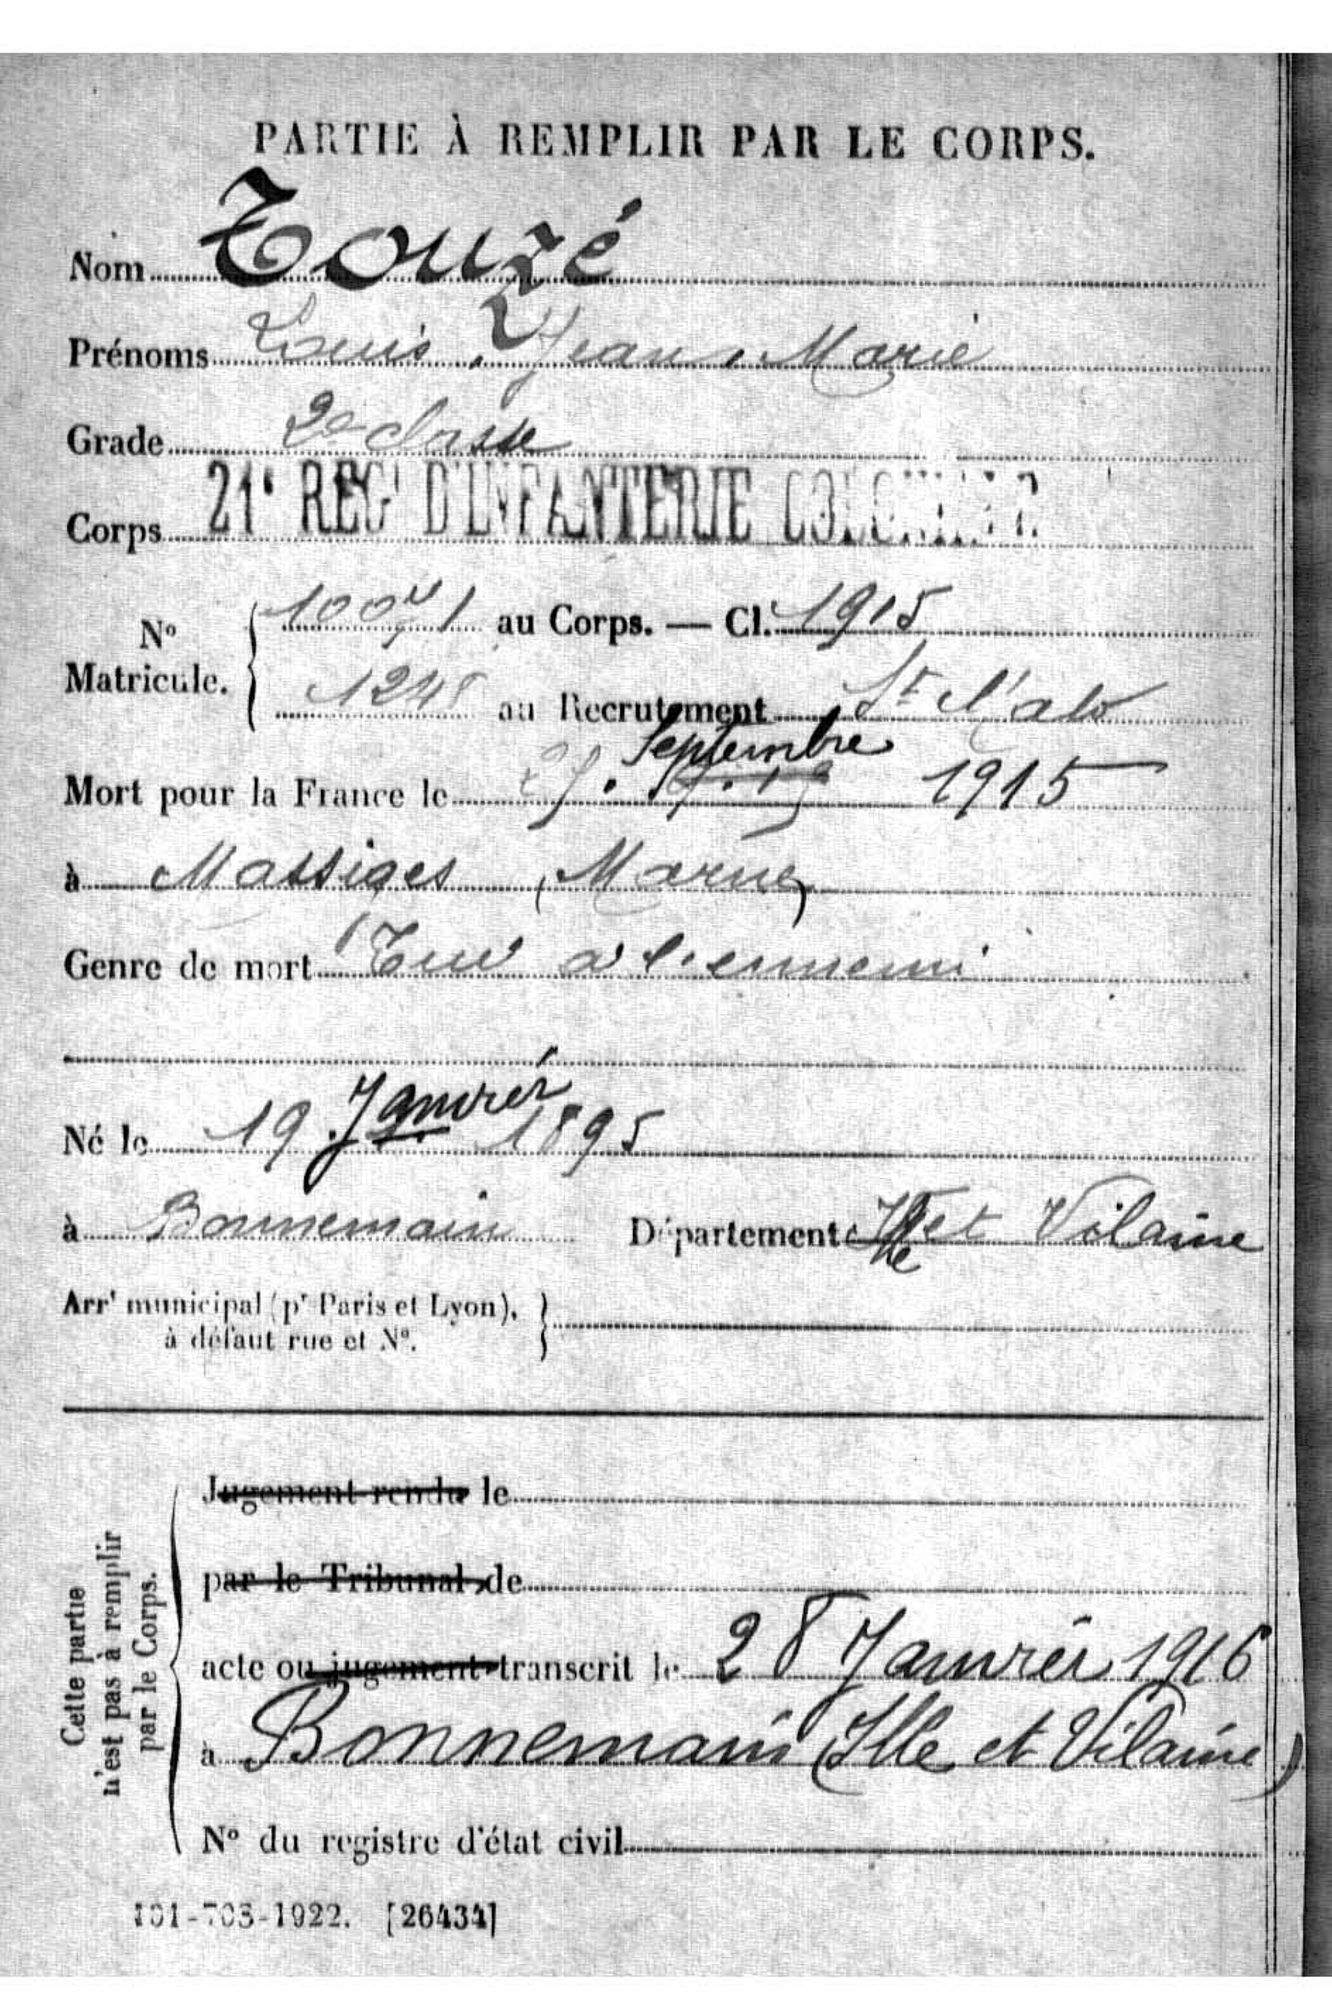 PARTIE À REMPLIR PAR LE CORPS.
Nom Touzé
Prénoms Louis, Jean, Marie
Grade 2e classe
Corps 21e REGt D'INFANTERIE COLONIALE
No Matricule. au Corps. — Cl. 1915
au Recrutement St Malo
Septembre
Mort pour la France le 27. 1915
à Massiges (Marne)
Genre de mort Tué à l'ennemi
Né le 19 Janvier 1895
à Bonnemain Département Ille et Vilaine
Arrt municipal (pr Paris et Lyon), à défaut rue et No.
Cette partie n'est pas à remplir par le Corps.
Jugement rendu le
par le Tribunal de
acte ou jugement transcrit le 28 Janvier 1916
à Bonnemain (Ille et Vilaine)
No du registre d'état civil
101-703-1922. [26434]